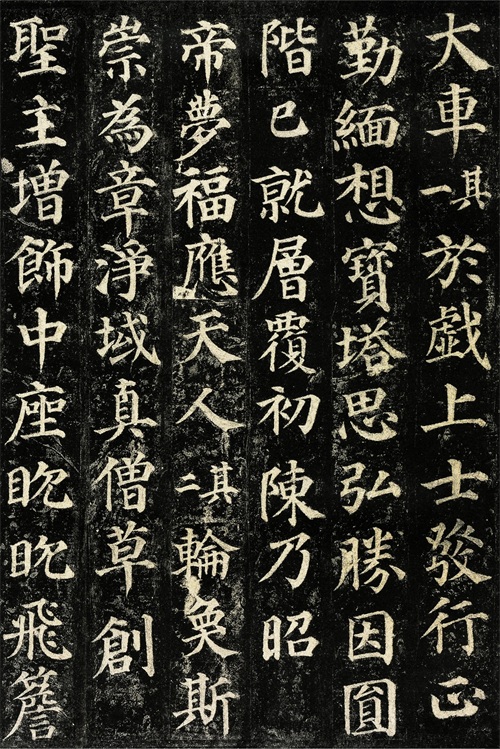 大車其一於戯上士發行正
勤緬想寶塔思弘勝因圓
階已就層覆初陳乃昭
帝夢福應天人其二輪奐斯
崇為章淨域真僧草創
聖主增飾中座眈眈飛簷